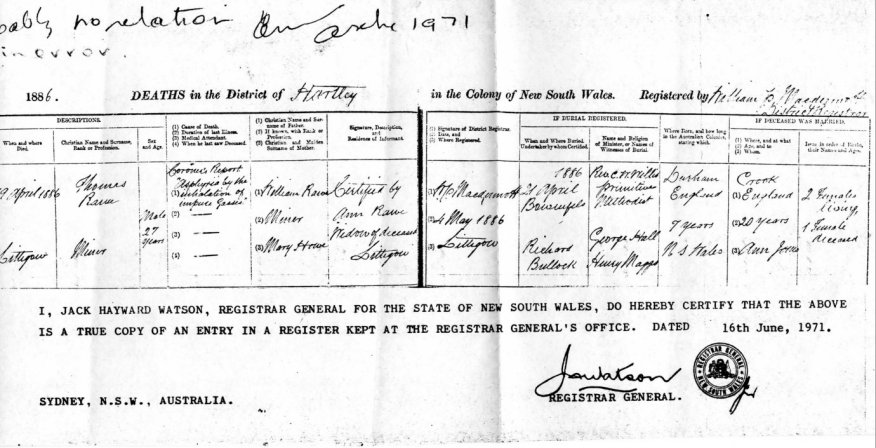 no relation 1971
in error.
1886. DEATHS in the District of Hartley in the Colony of New South Wales. Registered by William
District Registrar
DESCRIPTIONS.
When and where Died.
Christian Name and Surname, Rank or Profession.
Sex and Age.
(1) Cause of Death.
(2) Duration of last Illness.
(3) Medical Attendant.
(4) When he last saw Deceased.
(1) Christian Name and Surname of Father.
(2) If known, with Rank or Profession.
(3) Christian and Maiden Surname of Mother.
Signature, Description, and Residence of Informant.
(1) Signature of District Registrar.
(2) Date, and
(3) Where Registered.
IF BURIAL REGISTERED.
When and Where Buried. Undertaker by whom Certified.
Name and Religion of Minister, or Names of Witnesses of Burial
Where Born, and how long in the Australian Colonies, stating which.
IF DECEASED WAS MARRIED.
(1) Where, and at what
(2) Age, and to
(3) Whom.
Issue in order of Births, their Names and Ages.
9 April 1886
Lithgow
Thomas
Miner
Male
27
years
Coroner's Report
(1) "Asphyxia by the
inhalation of
impure gases"
(2) —
(3) —
(4) —
(1) William
(2) Miner
(3) Mary Howe
Certified by
Ann
Widow of deceased
Lithgow
(1)
(2) 4 May 1886
(3) Lithgow
1886
21 April
Richard
Bullock
Primitive
Methodist
George Hall
Henry
Durham
England
7 years
N S Wales
Crook
(1) England
(2) 20 years
(3) Ann Jones
2 Females
living,
1 Female
deceased
I, JACK HAYWARD WATSON, REGISTRAR GENERAL FOR THE STATE OF NEW SOUTH WALES, DO HEREBY CERTIFY THAT THE ABOVE
IS A TRUE COPY OF AN ENTRY IN A REGISTER KEPT AT THE REGISTRAR GENERAL'S OFFICE. DATED 16th June, 1971.
Watson
SYDNEY, N.S.W., AUSTRALIA.
REGISTRAR GENERAL.
REGISTRAR GENERAL
NEW SOUTH WALES